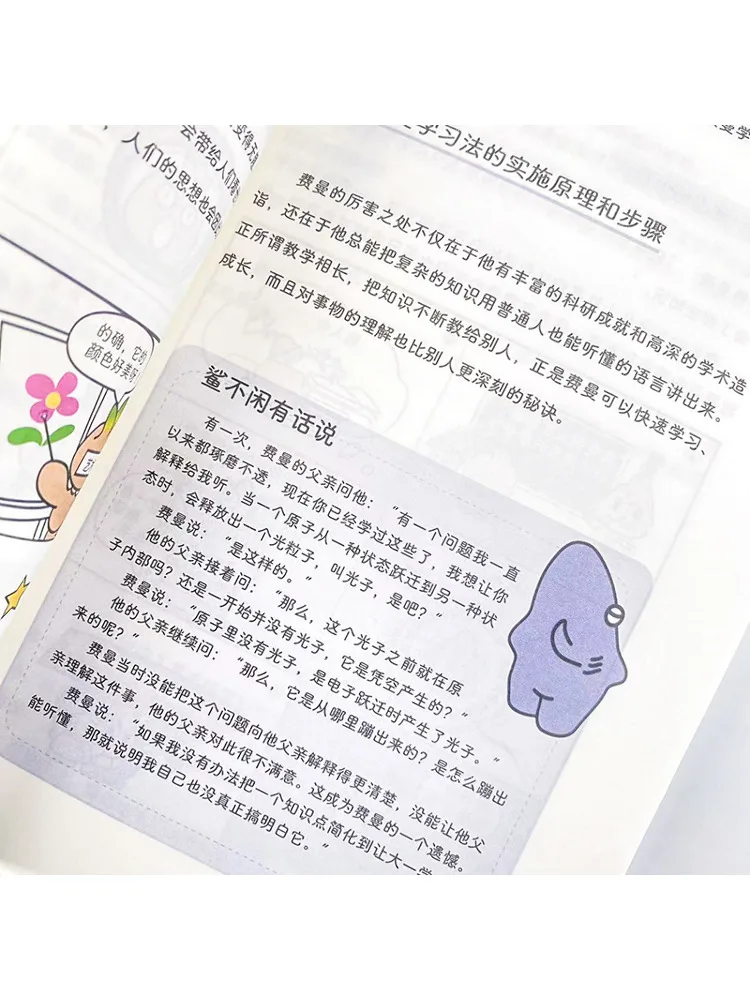 会带给人们
人们的思想也会
的确，它
颜色好美
学习法的实施原理和步骤
费曼的厉害之处不仅在于他有丰富的科研成就和高深的学术造
诣，还在于他总能把复杂的知识用普通人也能听懂的语言讲出来。
正所谓教学相长，把知识不断教给别人，正是费曼可以快速学习、
成长，而且对事物的理解也比别人更深刻的秘诀。
鲨不闲有话说
有一次，费曼的父亲问他：“有一个问题我一直
以来都琢磨不透，现在你已经学过这些了，我想让你
解释给我听。当一个原子从一种状态跃迁到另一种状
态时，会释放出一个光粒子，叫光子，是吧？”
费曼说：“是这样的。”
他的父亲接着问：“那么，这个光子之前就在原
子内部吗？还是一开始并没有光子，它是凭空产生的？”
费曼说：“原子里没有光子，是电子跃迁时产生了光子。”
他的父亲继续问：“那么，它是从哪里蹦出来的？是怎么蹦出
来的呢？”
费曼当时没能把这个问题向他父亲解释得更清楚，没能让他父
亲理解这件事，他的父亲对此很不满意。这成为费曼的一个遗憾。
费曼说：“如果我没有办法把一个知识点简化到让大一学
能听懂，那就说明我自己也没真正搞明白它。”